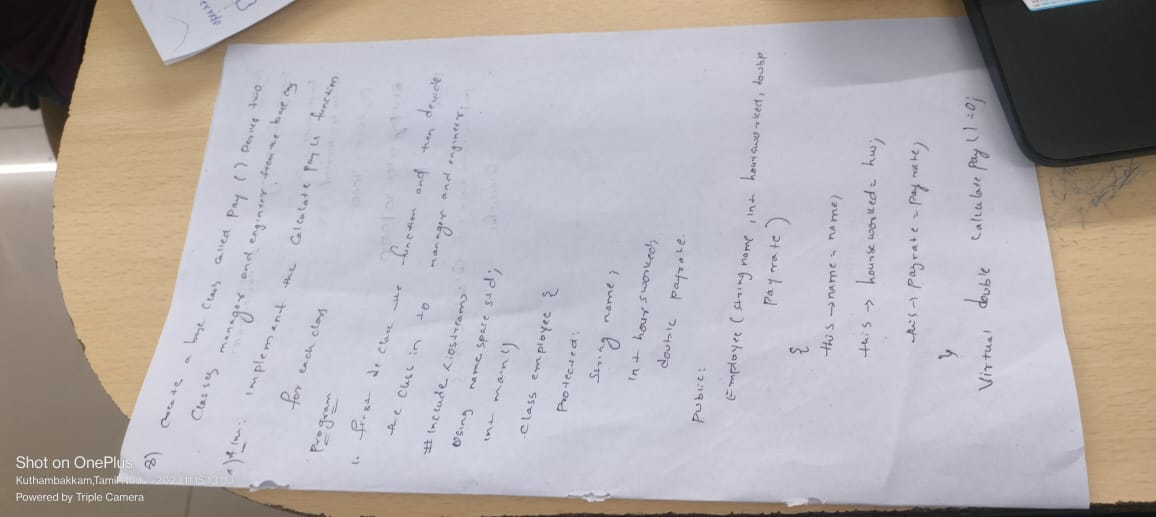 8) Create a base class called Pay () Derive two
Classes manager and engineer from the base
Aim: implement the Calculate Pay () function
for each class
Program
1. first declare the function and then devide
the class in to manager and engineer.
#include <iostream>
Using namespace std;
int main()
class employee {
Protected:
String name;
int hoursworked;
double payrate.
Public:
Employee (string name, int hoursworked, doubp
payrate)
{
this → name = name;
this → hourseworked = hw;
this → payrate = payrate;
}
Virtual double Calculate pay () = 0;
Shot on OnePlus
Kuthambakkam,Tamil
Powered by Triple Camera